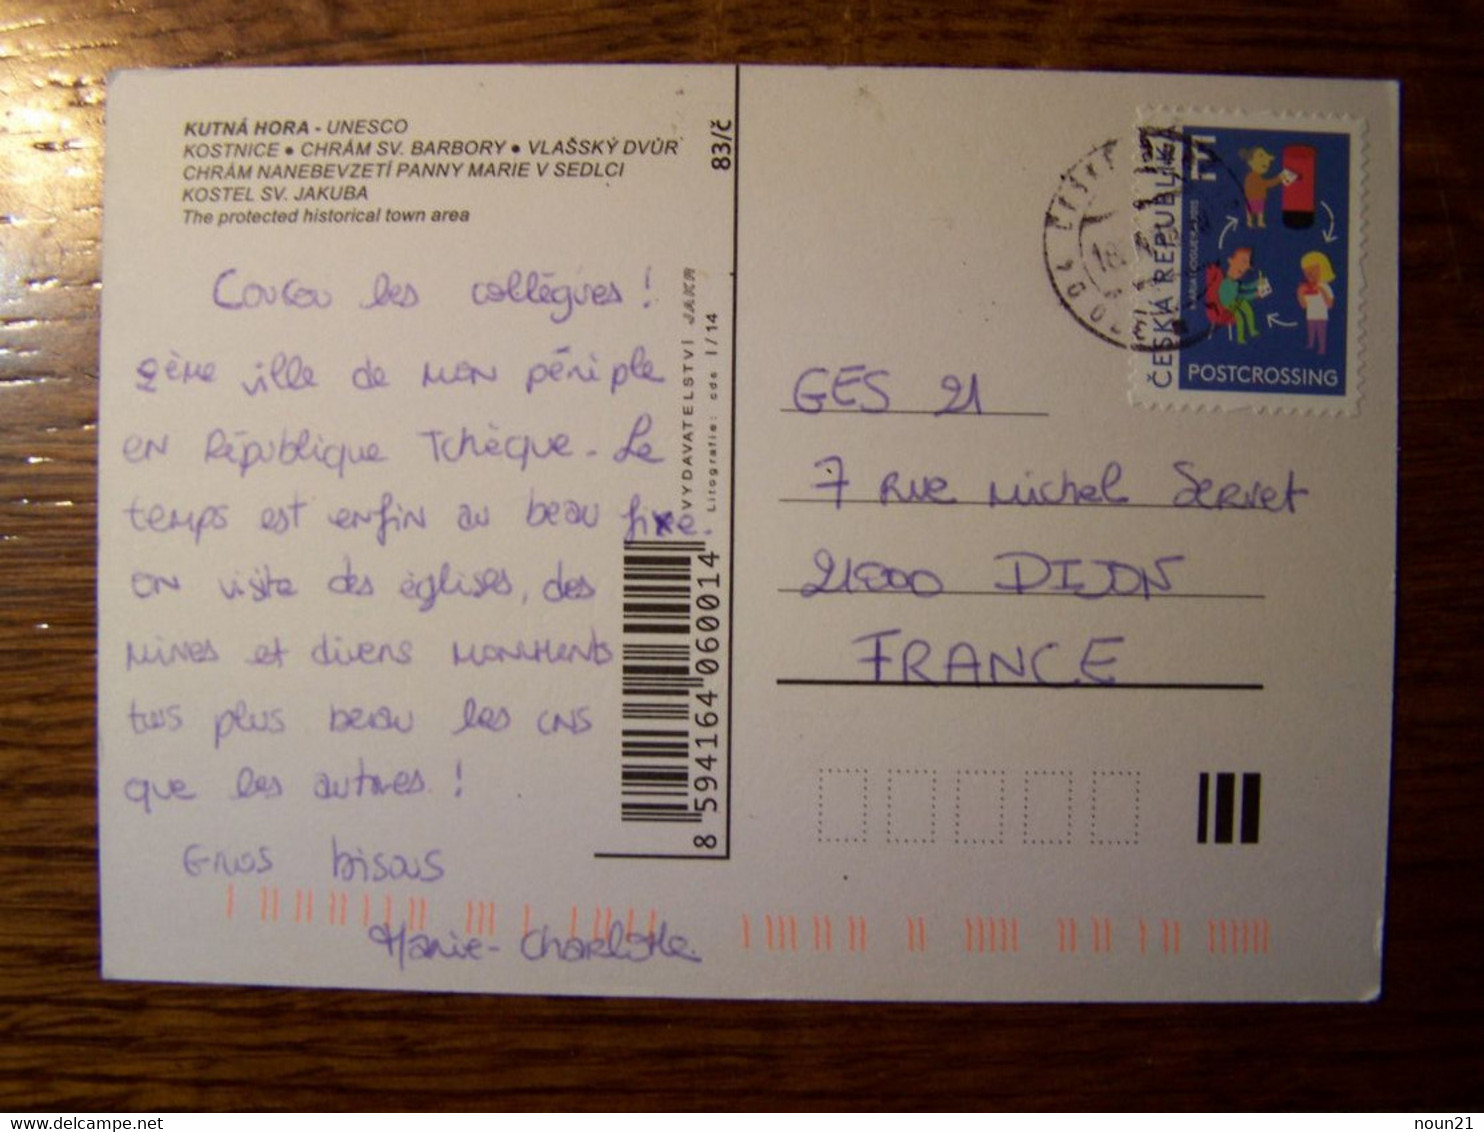 KUTNÁ HORA - UNESCO
KOSTNICE • CHRÁM SV. BARBORY • VLAŠSKÝ DVŮR
CHRÁM NANEBEVZETÍ PANNY MARIE V SEDLCI
KOSTEL SV. JAKUBA
The protected historical town area
83/č
Coucou les collègues !
2ème ville de mon périple
en République Tchèque. Le
temps est enfin au beau fixe.
On visite des églises, des
mines et divers monuments
tus plus beau les uns
que les autres !
Gros bisous
Marie-Charlotte.
VYDAVATELSTVÍ JAKR
Litografie: cds 1/14
8 594164 060014
ČESKÁ REPUBLIKA
POSTCROSSING
GES 21
7 rue Michel Servet
21000 DIJON
FRANCE
noun21